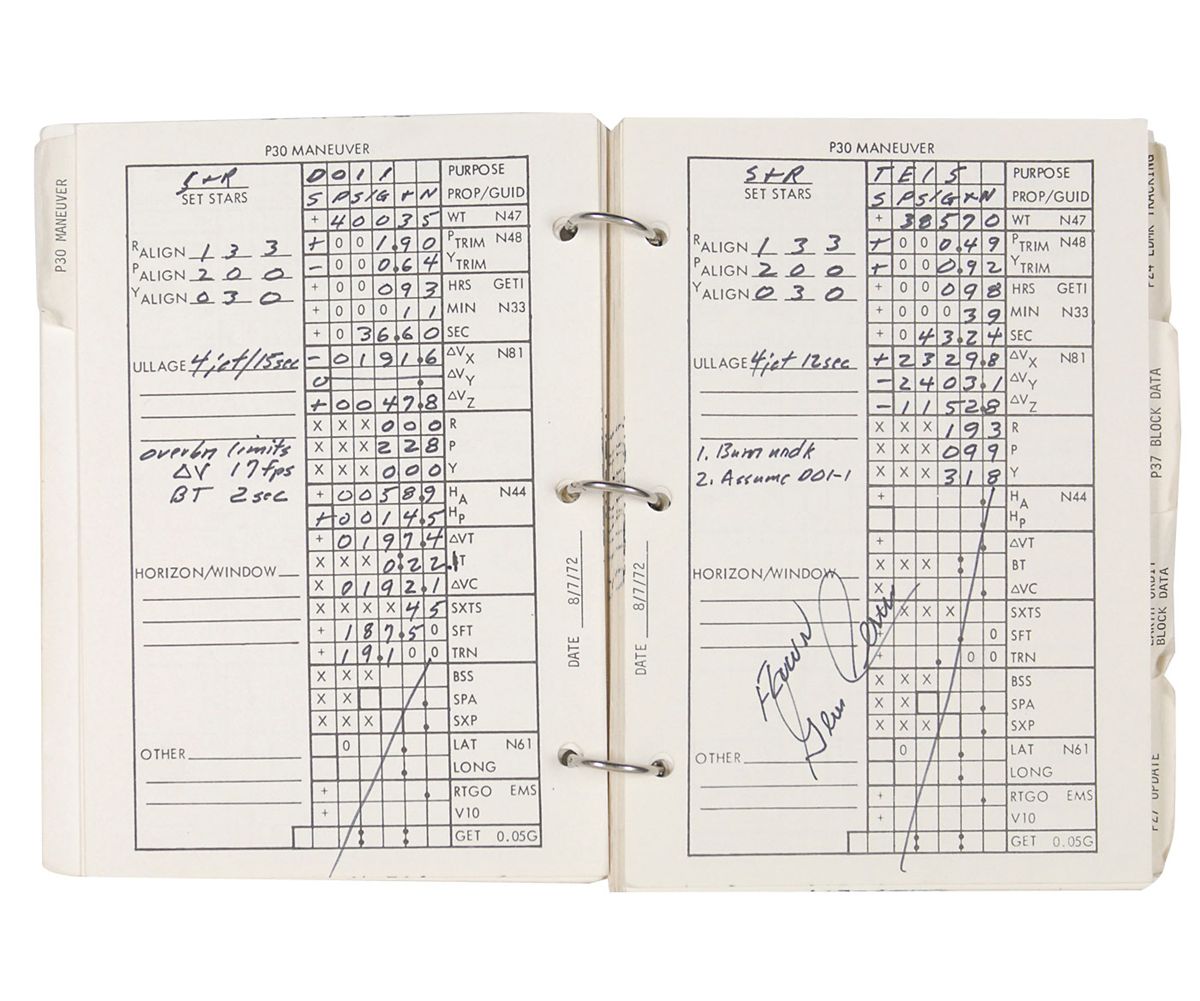 P30 MANEUVER
P30 MANEUVER
S+R
SET STARS
R ALIGN 1 3 3
P ALIGN 2 0 0
Y ALIGN 0 3 0
ULLAGE 4 jet/15sec
overbn limits
ΔV 17 fps
BT 2 sec
HORIZON/WINDOW
OTHER
D O I 1 PURPOSE
S P S/G + N PROP/GUID
+ 4 0 0 3 5 WT N47
+ 0 0 1.9 0 P TRIM N48
- 0 0 0.6 4 Y TRIM
+ 0 0 0 9 3 HRS GETI
+ 0 0 0 1 1 MIN N33
+ 0 3 6.6 0 SEC
- 0 1 9 1.6 ΔVX N81
0 . ΔVY
+ 0 0 4 7.8 ΔVZ
X X X 0 0 0 R
X X X 2 2 8 P
X X X 0 0 0 Y
+ 0 0 5 8.9 HA N44
+ 0 0 1 4.5 HP
+ 0 1 9 7.4 ΔVT
X X X 0:2 2.1 BT
X 0 1 9 2.1 ΔVC
X X X X 4 5 SXTS
+ 1 8 7.5 0 SFT
+ 1 9.1 0 0 TRN
X X X BSS
X X SPA
X X X SXP
0 LAT N61
LONG
+ RTGO EMS
+ V10
GET 0.05G
DATE 8/7/72
P30 MANEUVER
S+R
SET STARS
R ALIGN 1 3 3
P ALIGN 2 0 0
Y ALIGN 0 3 0
ULLAGE 4 jet 12 sec
1. Burn undk
2. Assume DOI-1
HORIZON/WINDOW
Flown
Gene Cernan
OTHER
T E I 5 PURPOSE
S P S/G + N PROP/GUID
+ 3 8 5 7 0 WT N47
+ 0 0 0.4 9 P TRIM N48
+ 0 0 0.9 2 Y TRIM
+ 0 0 0 9 8 HRS GETI
+ 0 0 0 3 9 MIN N33
+ 0 4 3.2 4 SEC
+ 2 3 2 9.8 ΔVX N81
- 2 4 0 3.1 ΔVY
- 1 1 5 2.8 ΔVZ
X X X 1 9 3 R
X X X 0 9 9 P
X X X 3 1 8 Y
+ HA N44
HP
+ ΔVT
X X X BT
X ΔVC
X X X X SXTS
+ 0 SFT
+ 0 0 TRN
X X X BSS
X X SPA
X X X SXP
0 LAT N61
LONG
+ RTGO EMS
+ V10
GET 0.05G
DATE 8/7/72
P37 BLOCK DATA
BLOCK DATA
P27 UPDATE